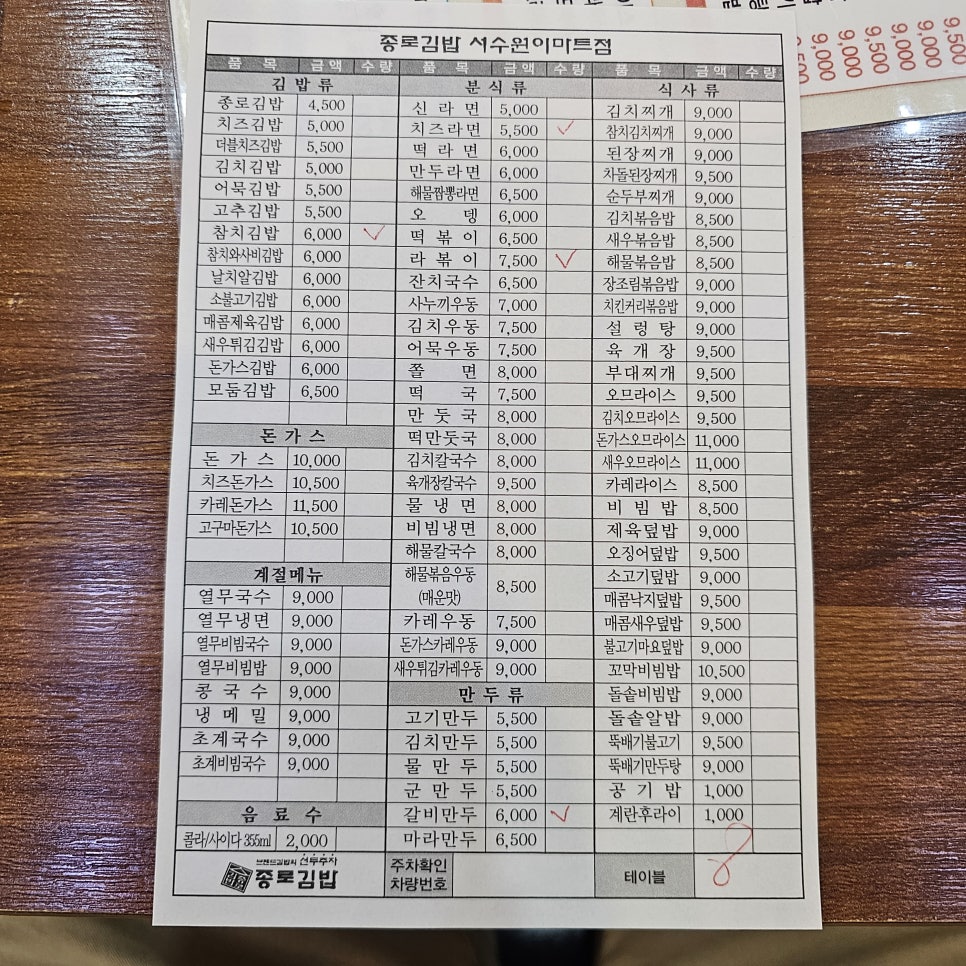 종로김밥 서수원이마트점
품 목 금액 수량 품 목 금액 수량 품 목 금액 수량
김 밥 류
종로김밥 4,500
치즈김밥 5,000
더블치즈김밥 5,500
김치김밥 5,000
어묵김밥 5,500
고추김밥 5,500
참치김밥 6,000 ✓
참치와사비김밥 6,000
날치알김밥 6,000
소불고기김밥 6,000
매콤제육김밥 6,000
새우튀김김밥 6,000
돈가스김밥 6,000
모둠김밥 6,500
돈 가 스
돈 가 스 10,000
치즈돈가스 10,500
카레돈가스 11,500
고구마돈가스 10,500
계절메뉴
열무국수 9,000
열무냉면 9,000
열무비빔국수 9,000
열무비빔밥 9,000
콩 국 수 9,000
냉 메 밀 9,000
초계국수 9,000
초계비빔국수 9,000
음 료 수
콜라/사이다 355ml 2,000
분 식 류
신 라 면 5,000
치즈라면 5,500 ✓
떡 라 면 6,000
만두라면 6,000
해물짬뽕라면 6,500
오 뎅 6,000
떡 볶 이 6,500
라 볶 이 7,500 ✓
잔치국수 6,500
사누끼우동 7,000
김치우동 7,500
어묵우동 7,500
쫄 면 8,000
떡 국 7,500
만 둣 국 8,000
떡만둣국 8,000
김치칼국수 8,000
육개장칼국수 9,500
물 냉 면 8,000
비빔냉면 8,000
해물칼국수 8,000
해물볶음우동
(매운맛) 8,500
카레우동 7,500
돈가스카레우동 9,000
새우튀김카레우동 9,000
만 두 류
고기만두 5,500
김치만두 5,500
물 만 두 5,500
군 만 두 5,500
갈비만두 6,000 ✓
마라만두 6,500
식 사 류
김치찌개 9,000
참치김치찌개 9,000
된장찌개 9,000
차돌된장찌개 9,500
순두부찌개 9,000
김치볶음밥 8,500
새우볶음밥 8,500
해물볶음밥 8,500
장조림볶음밥 9,000
치킨커리볶음밥 9,000
설 렁 탕 9,000
육 개 장 9,500
부대찌개 9,500
오므라이스 9,500
김치오므라이스 9,500
돈가스오므라이스 11,000
새우오므라이스 11,000
카레라이스 8,500
비 빔 밥 8,500
제육덮밥 9,000
오징어덮밥 9,500
소고기덮밥 9,000
매콤낙지덮밥 9,500
매콤새우덮밥 9,500
불고기마요덮밥 9,000
꼬막비빔밥 10,500
돌솥비빔밥 9,000
돌솥알밥 9,000
뚝배기불고기 9,500
뚝배기만두탕 9,000
공 기 밥 1,000
계란후라이 1,000
브랜드김밥의 선두주자
종로김밥
주차확인
차량번호
테이블 8
9,000
9,000
9,500
9,000
9,000
9,500